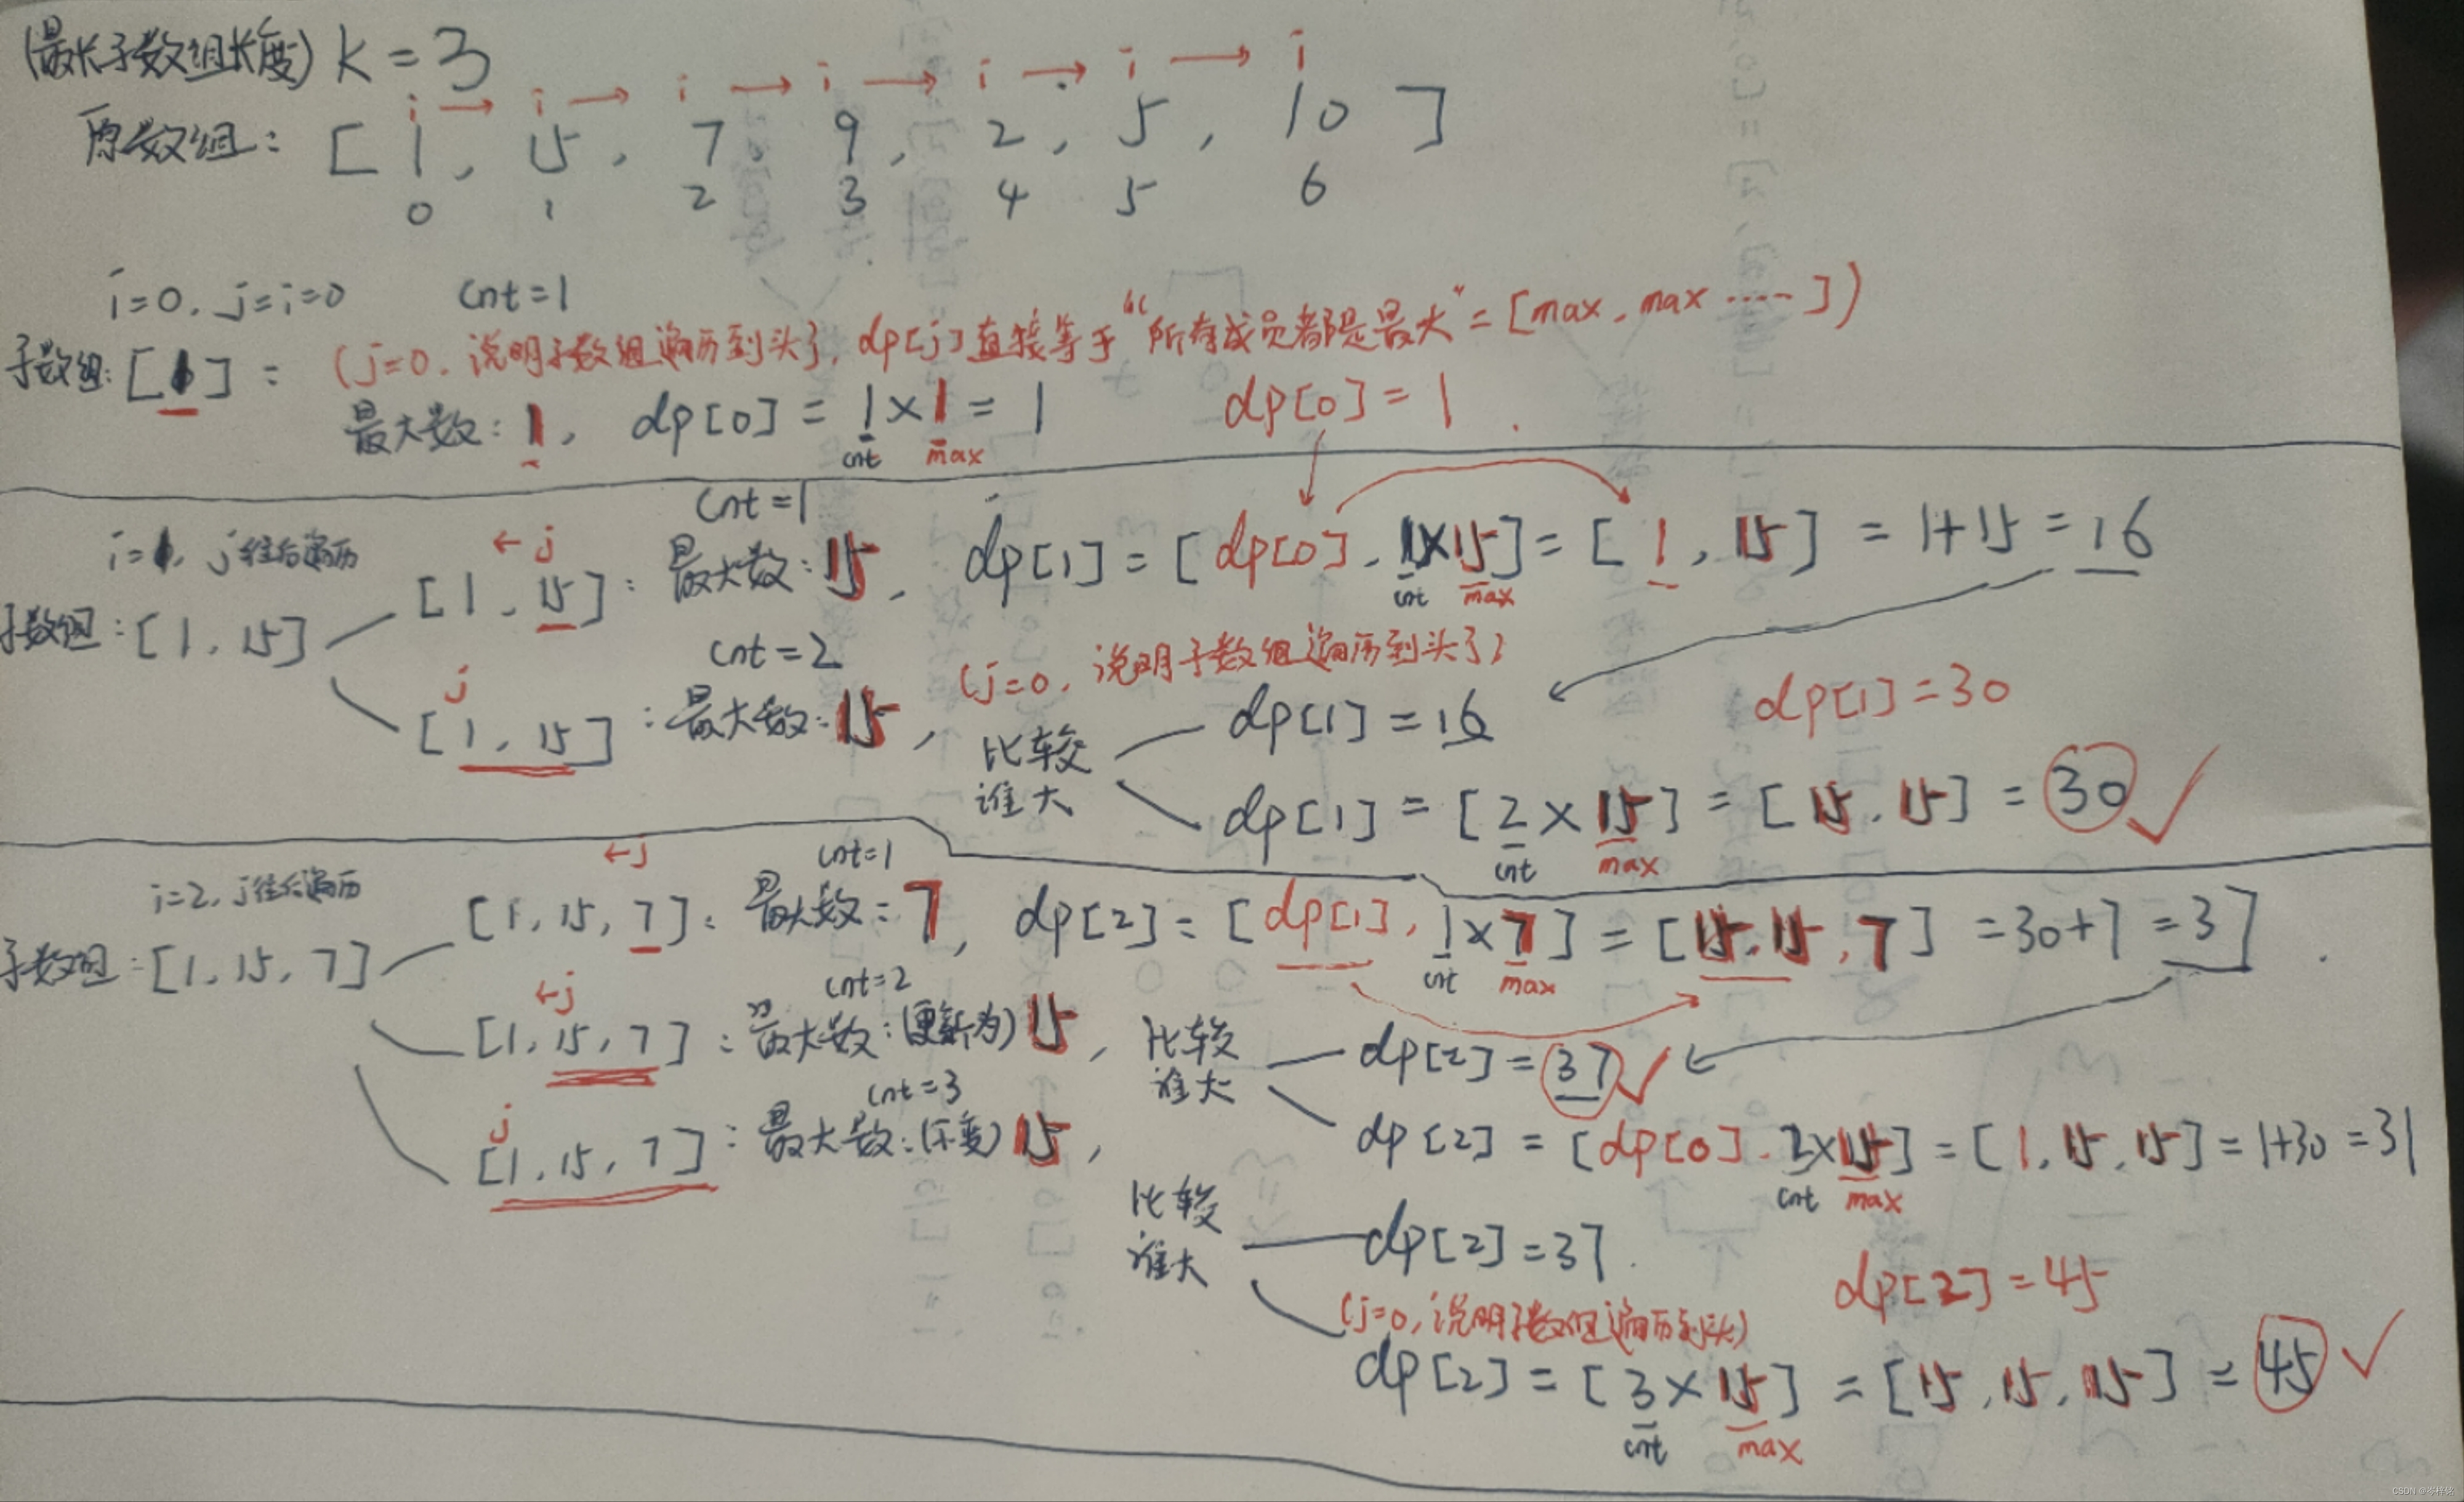 (最长子数组长度) k=3
i → i → i → i → i → i → i
原数组: [1, 15, 7, 9, 2, 5, 10]
0 1 2 3 4 5 6
i=0, j=i=0 cnt=1
(j=0, 说明子数组遍历到头了, dp[j]直接等于"所有成员都是最大"=[max, max ……])
子数组:[1]:
最大数:1, dp[0] = 1×1 = 1 dp[0]=1
cnt max
cnt=1
i=1, j往后遍历
←j
[1, 15]: 最大数:15, dp[1] = [dp[0], 1×15] = [1, 15] = 1+15 = 16
cnt max
子数组:[1, 15]
cnt=2
(j=0, 说明子数组遍历到头了)
j
[1, 15]: 最大数:15,
比较谁大
dp[1] = 16
dp[1]=30
dp[1] = [2×15] = [15, 15] = 30
cnt max
i=2, j往后遍历
←j
cnt=1
[1, 15, 7]: 最大数:7, dp[2] = [dp[1], 1×7] = [15, 15, 7] = 30+7 = 37
cnt max
子数组:[1, 15, 7]
←j
cnt=2
[1, 15, 7]: 最大数:(更新为)15,
比较谁大
dp[2] = 37
dp[2] = [dp[0], 2×15] = [1, 15, 15] = 1+30 = 31
cnt max
cnt=3
j
[1, 15, 7]: 最大数:(不变)15,
比较谁大
dp[2] = 37
dp[2]=45
(j=0, 说明子数组遍历到头)
dp[2] = [3×15] = [15, 15, 15] = 45
cnt max